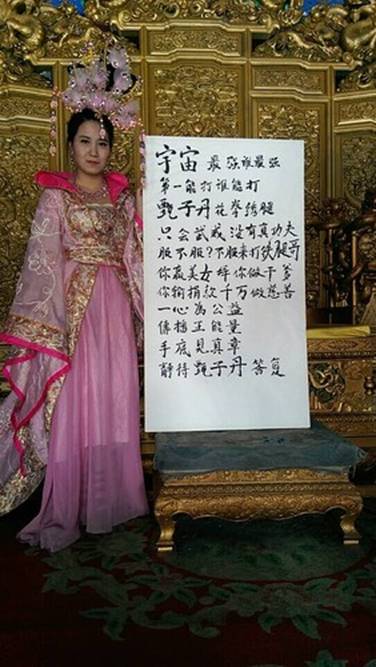 宇宙 最强谁最强
第一能打谁能打
甄子丹花拳绣腿
只会武戏没有真功夫
服不服?不服来打铁腿哥
你赢美女拜你做干爹
你输捐款千万做慈善
一心為公益
傳播正能量
手底見真章
静待甄子丹答复